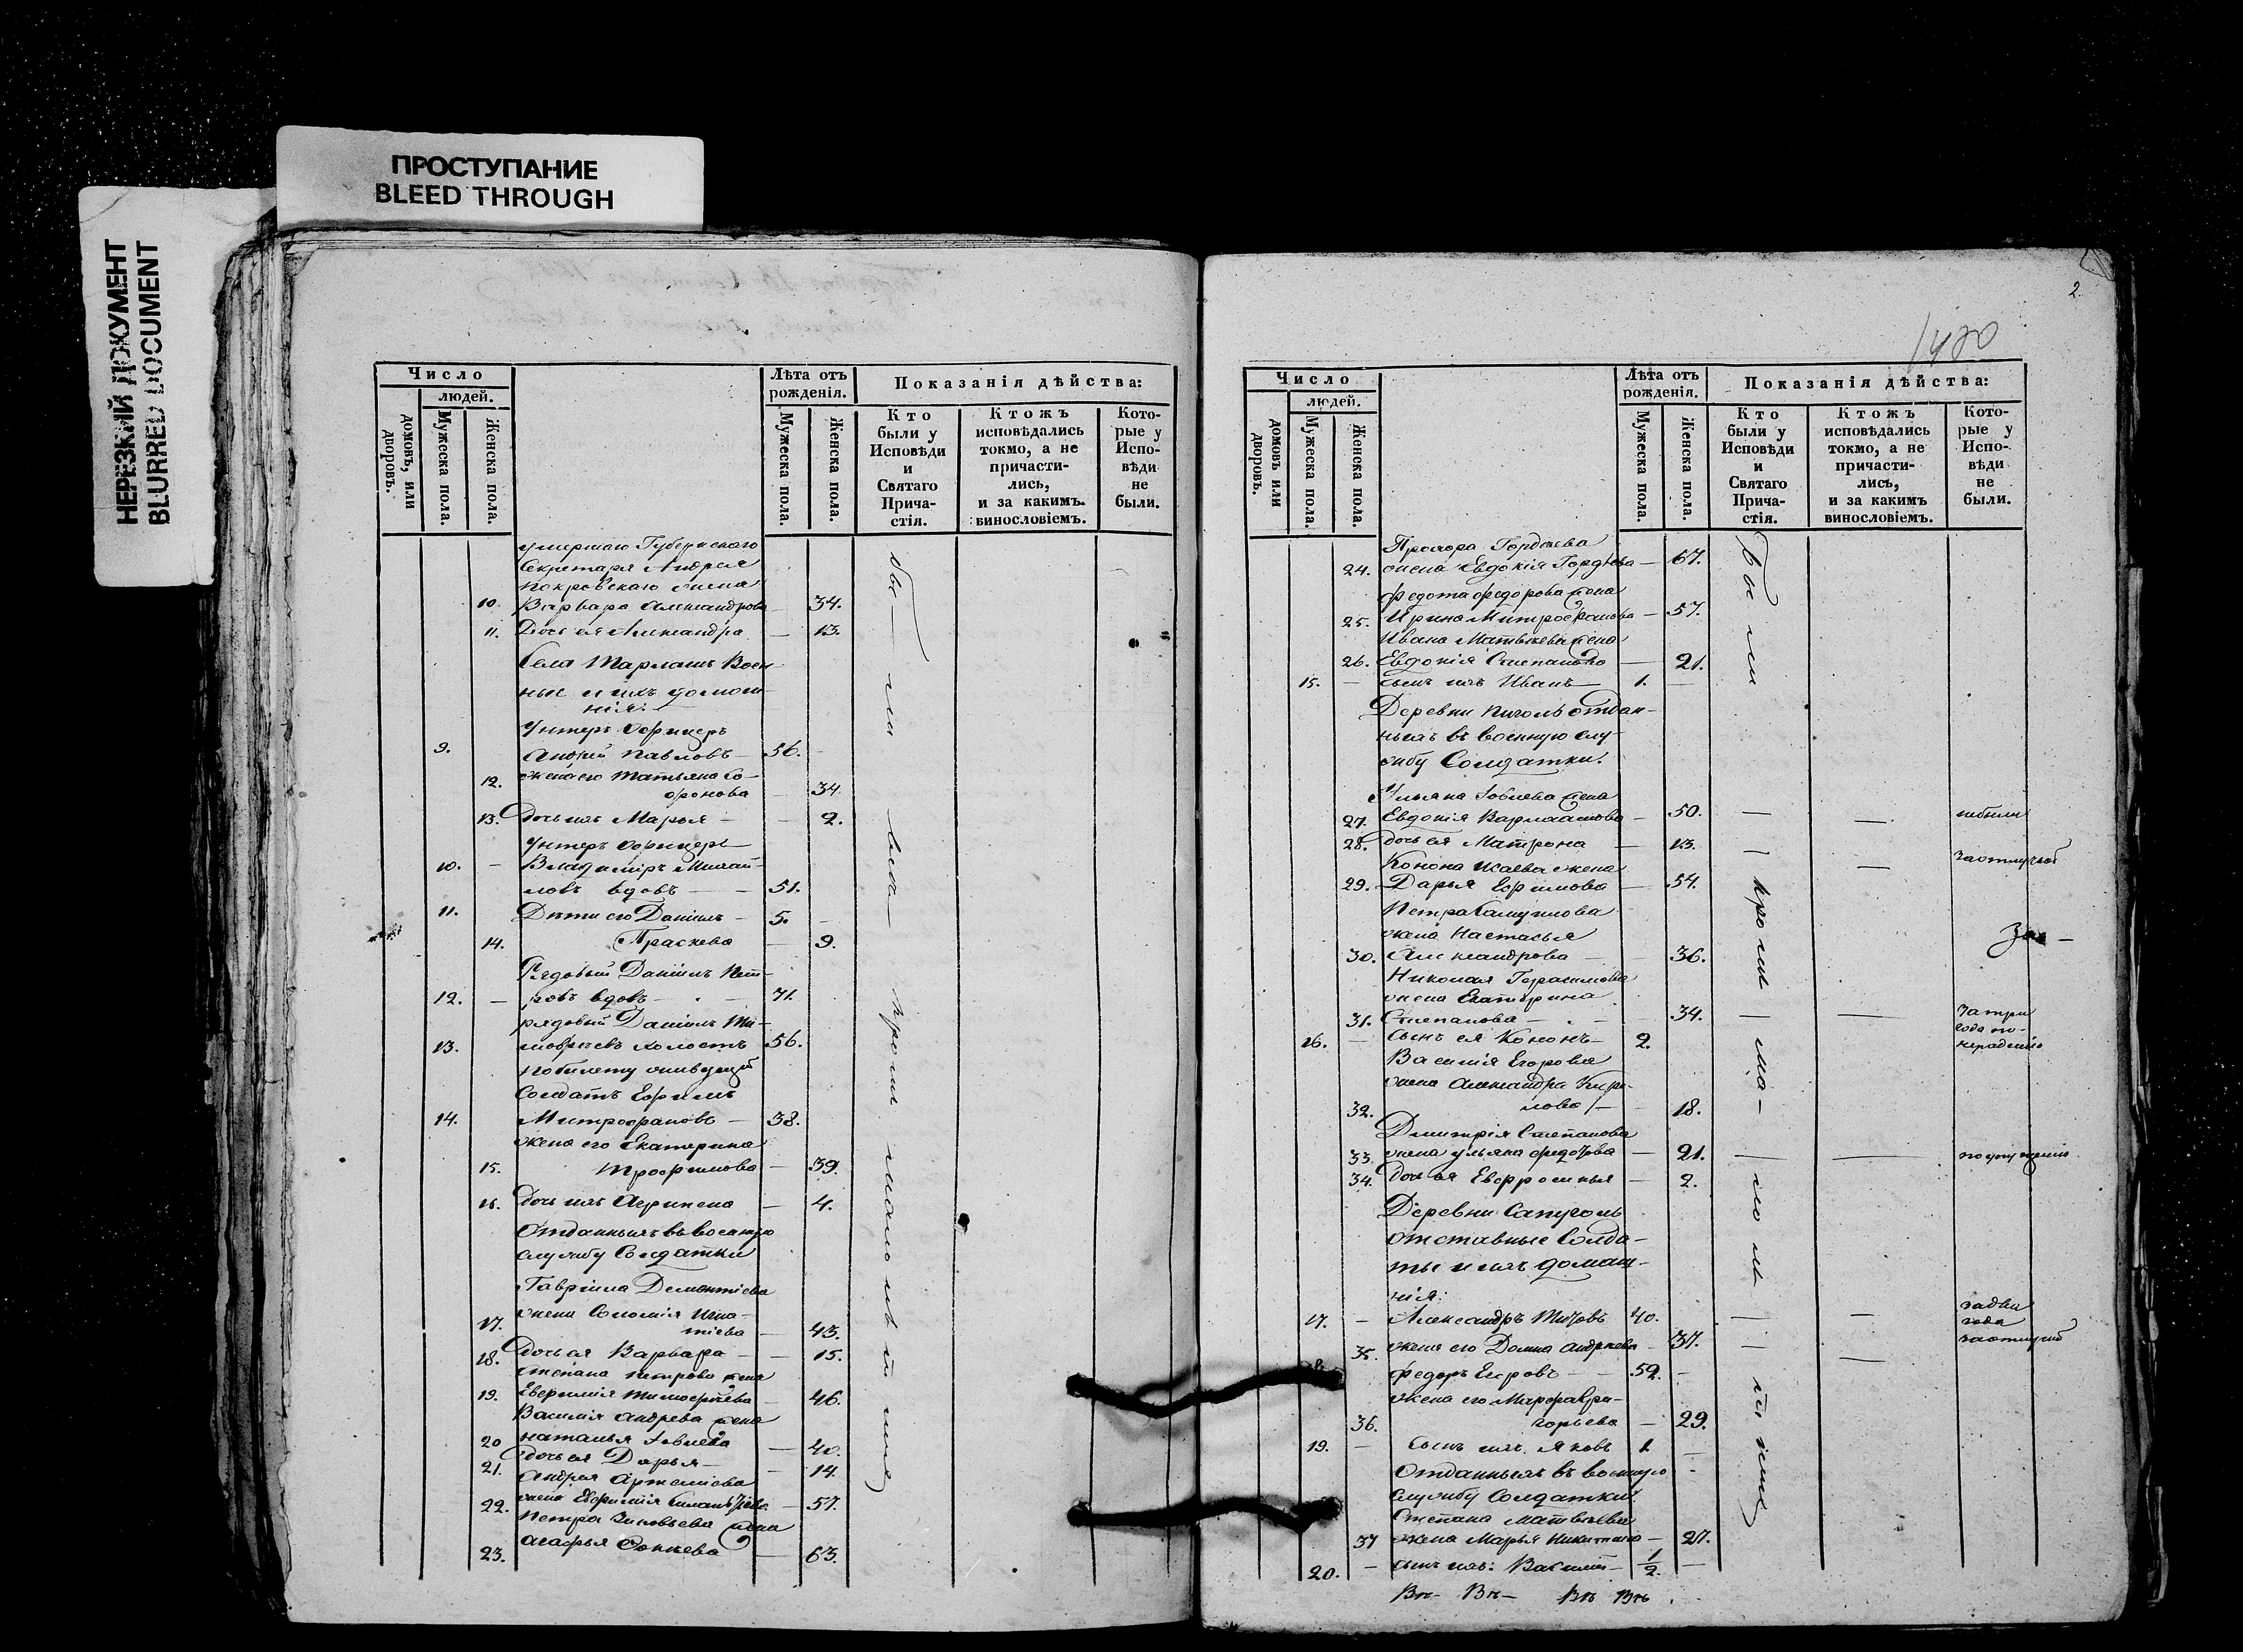 ПРОСТУПАНИЕ
BLEED THROUGH
НЕРЕЗКИЙ ДОКУМЕНТ
BLURRED DOCUMENT
Число
людей.
домовъ, или дворовъ.
Мужеска пола.
Женска пола.
Лѣта отъ рожденія.
Мужеска пола.
Женска пола.
Показанія дѣйства:
Кто были у Исповѣди и Святаго Прича-стія.
Ктожъ исповѣдались токмо, а не причасти-лись, и за какимъ винословіемъ.
Кото-рые у Испо-вѣди не были.
умершаго Губернскаго
Секретаря Андрея
Покровскаго жена
10. Варвара Александрова — 34.
11. Дочь ея Александра — 13.
Села Шарлашъ Воен-
ные и ихъ домаш-
нія:
Унтеръ офицеръ
9. Андрей Павловъ — 56.
12. жена его Татьяна Со-
фронова — 34.
13. Дочь ихъ Марья — 2.
Унтеръ офицеръ
10. Владиміръ Михай-
ловъ вдовъ — 51.
11. Дѣти его Даніилъ — 5.
14. Праскева — 9.
Рядовый Даніилъ Пет-
12. ровъ вдовъ — 71.
рядовый Даніилъ Ти-
13. мофѣевъ холостъ 56.
по билету живущій
Солдатъ Ефимъ
14. Митрофановъ — 38.
жена его Екатерина
15. Трофимова — 39.
16. Дочь ихъ Агрипена — 4.
Отданныхъ въ военную
службу Солдатки
Гавріила Дементіева
17. жена Соломія Игна-
тіева — 43.
18. дочь ея Варвара — 15.
Степана Петрова жена
19. Евфимія Тимофѣева — 46.
Василія Андреева жена
20 Наталья Іовлева — 40.
21. дочь ея Дарья — 14.
Андрея Артеміева
22. жена Евфимія — 57.
Петра Зиновьева жена
23. Агафья Фокеева — 63.
бы ли вси кроми малолѣтнихъ
2.
1420
Число
людей.
домовъ или дворовъ.
Мужеска пола.
Женска пола.
Лѣта отъ рожденія.
Мужеска пола.
Женска пола.
Показанія дѣйства:
Кто были у Исповѣди и Святаго Прича-стія.
Ктожъ исповѣдались токмо, а не причасти-лись, и за какимъ винословіемъ.
Кото-рые у Испо-вѣди не были.
Прохора Гордѣева
24. жена Евдокія Гордѣева — 67.
Федота Федорова жена
25. Ирина Митрофанова — 57.
Ивана Матвѣева жена
26. Евдокія Степанова — 21.
15. — сынъ ихъ Иванъ — 1.
Деревни отдан-
ныхъ въ военную слу-
жбу Солдатки.
Ульяна Іовлева жена
27. Евдокія Варлаамова — 50. небыли
28. дочь ея Матрона — 13. заотлучкой
Конона Исаева жена
29. Дарья Ефимова — 54.
Петра Самуилова
жена Настасья
30. Александрова — 36.
Николая Герасимова
жена Екатерина
31. Степанова — 34. за три года по нерадѣнію
16. — сынъ ея Кононъ — 2.
Василія Егорова
жена Александра Кири-
32. лова — 18.
Дмитрія Степанова
33. жена Ульяна Федотова — 21. по упущенію
34. дочь ея Евфросинья — 2.
Деревни Сапуголь
отставные Солда-
ты и ихъ домаш-
нія:
17. — Александръ Титовъ 40. за два года
35. жена его Домна Андреева — 37. заотлучкой
Федоръ Егоровъ — 59.
жена его Марфа Гри-
36. горьева — 29.
19. — сынъ ихъ Яковъ 1.
Отданныхъ въ военную
службу Солдатки.
Степана Матвѣева
37 жена Марья Никитина — 27.
20. — сынъ ихъ: Василій — 1/2.
Бы ли кроми малолѣтнихъ